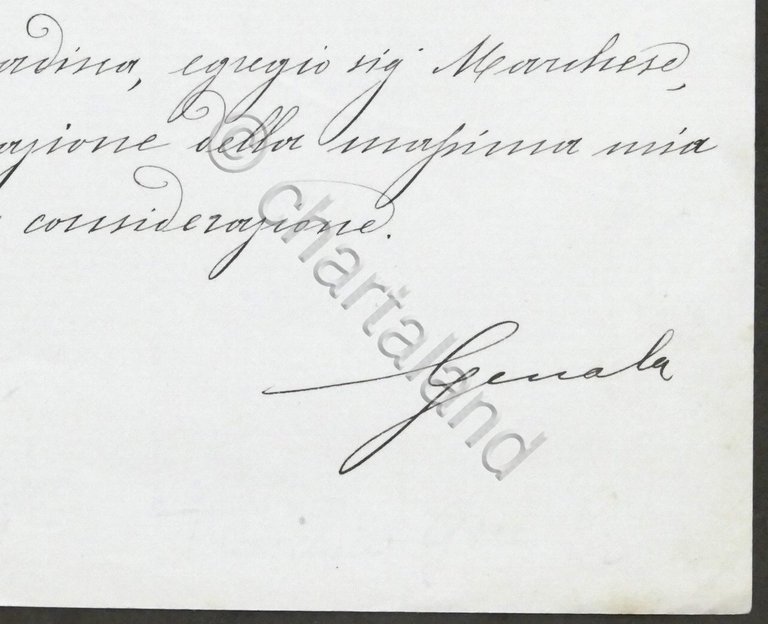 adisca, egregio sig. Marchese,
azione della massima mia
considerazione.
Genala
© chartaland